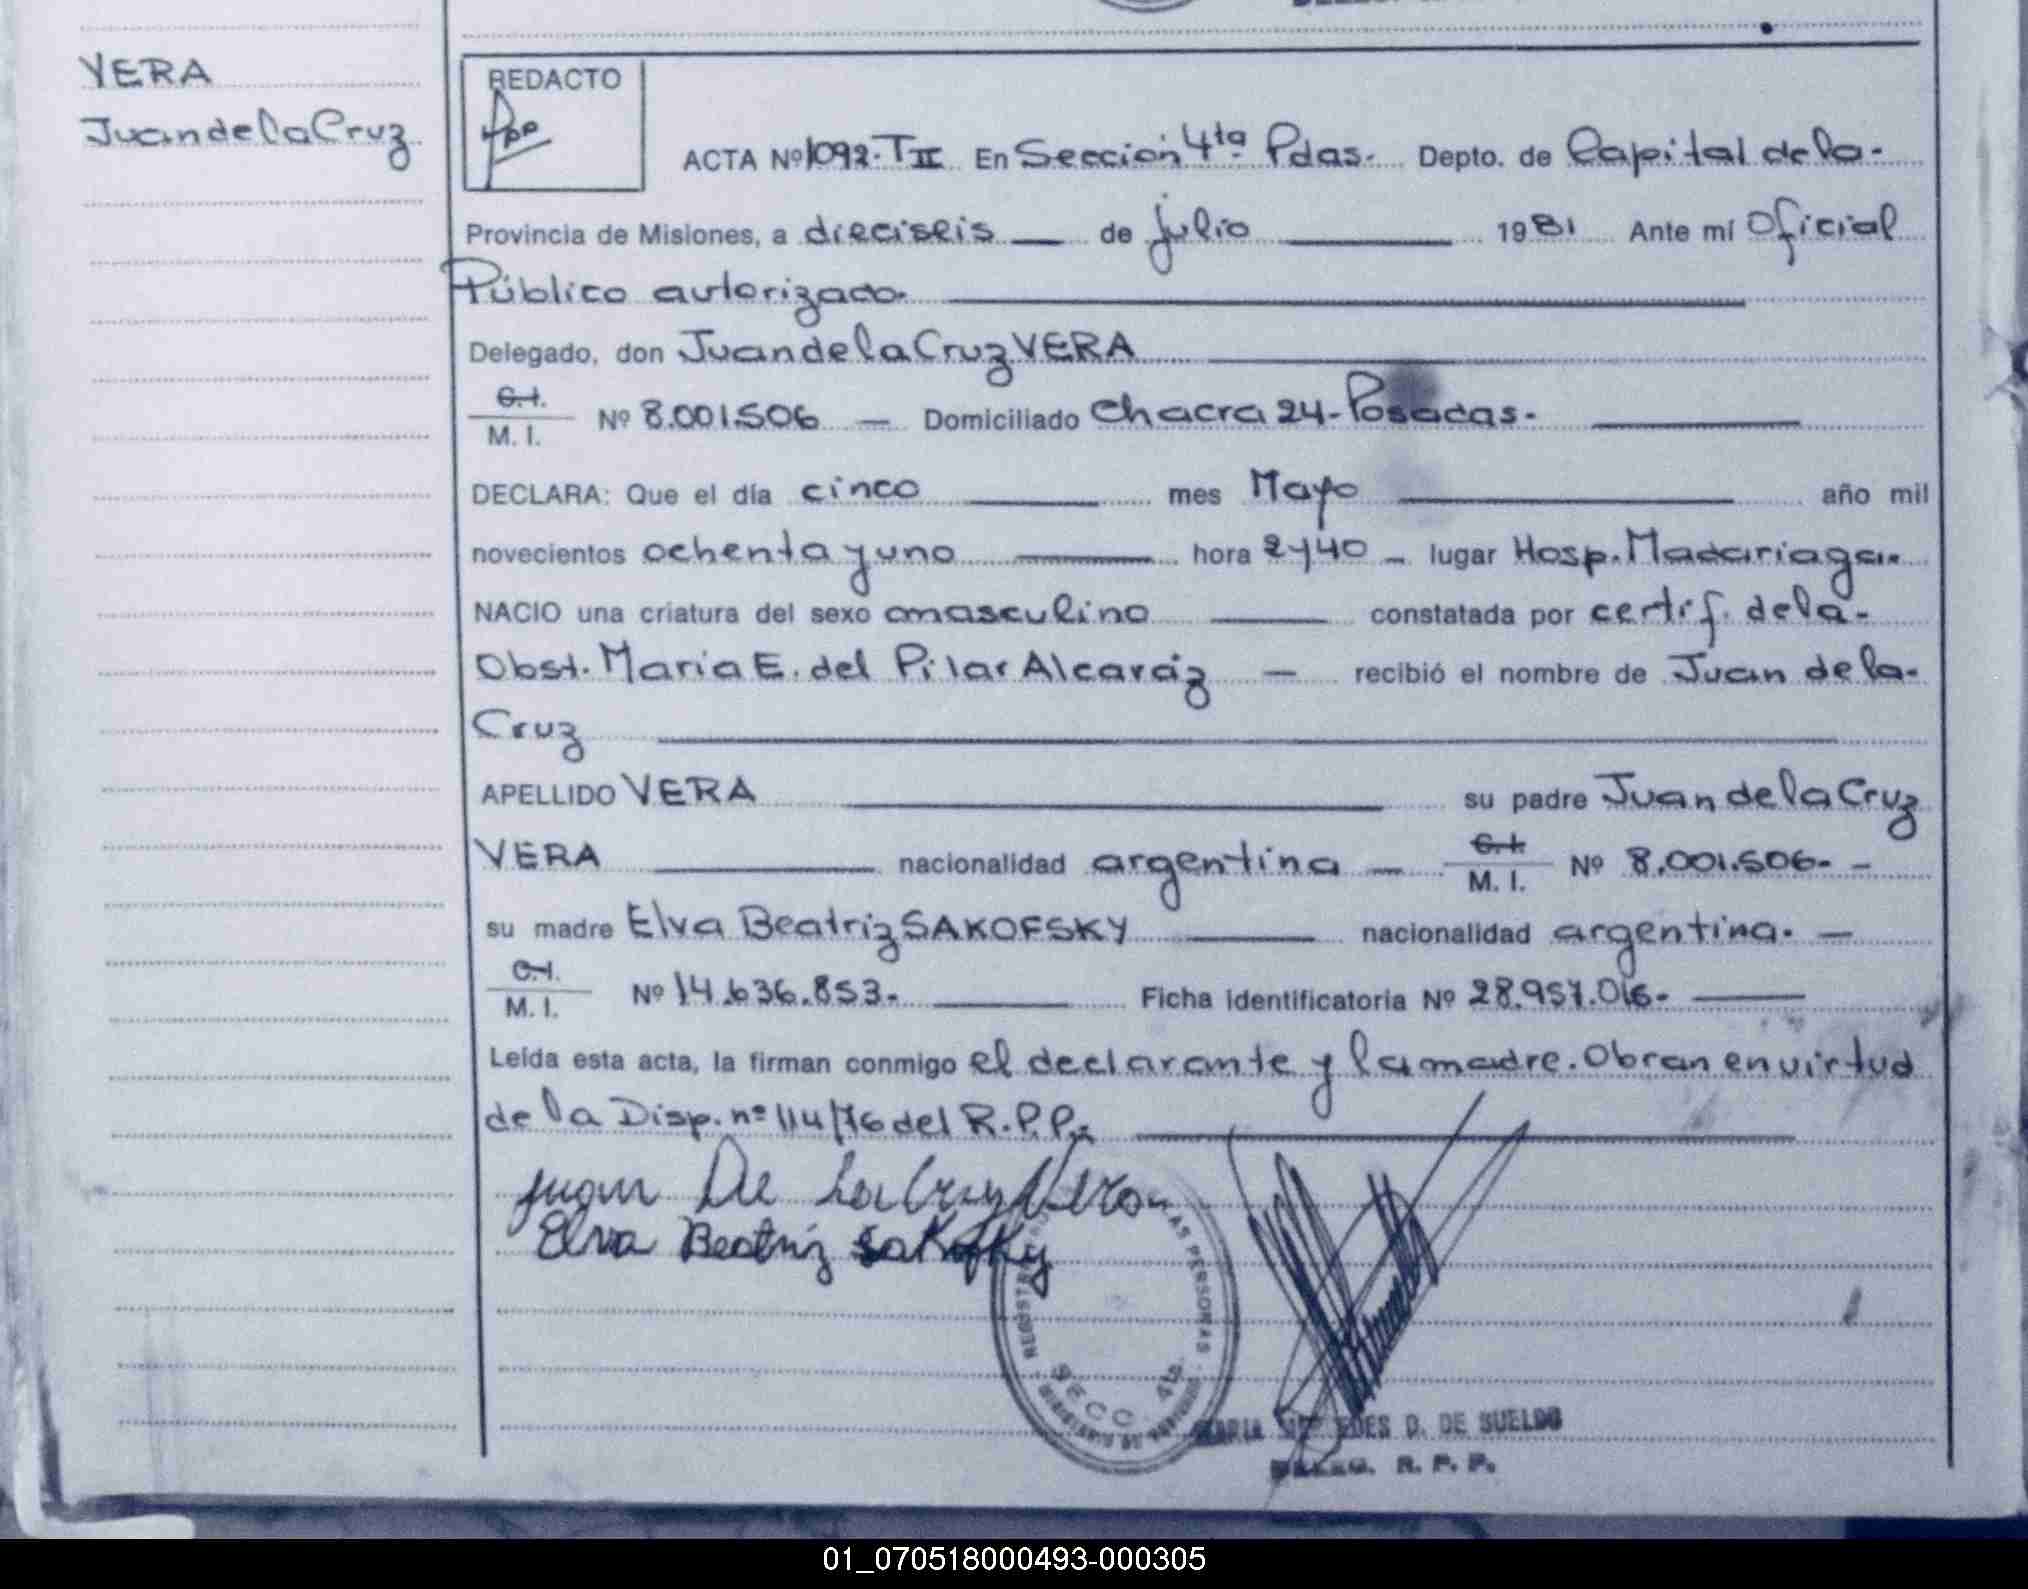 VERA
Juan de la Cruz
REDACTO
ACTA Nº 1092. T II En Sección 4ta Pdas. Depto. de Capital de la.
Provincia de Misiones, a dieciseis de julio 1981 Ante mí Oficial
Público autorizado.
Delegado, don Juan de la Cruz VERA
C. I.
M. I. Nº 8.001.506 — Domiciliado Chacra 24-Posadas.
DECLARA: Que el día cinco mes Mayo año mil
novecientos ochenta y uno hora 2y40 — lugar Hosp. Madariaga.
NACIO una criatura del sexo masculino constatada por certif. de la.
Obst. Maria E. del Pilar Alcaráz — recibió el nombre de Juan de la.
Cruz
APELLIDO VERA su padre Juan de la Cruz
VERA nacionalidad argentina — C. I.
M. I. Nº 8.001.506. —
su madre Elva Beatriz SAKOFSKY nacionalidad argentina. —
C. I.
M. I. Nº 14.636.853. Ficha identificatoria Nº 28.957.016.
Leída esta acta, la firman conmigo el declarante y la madre. Obran en virtud
de la Disp. nº 114/76 del R.P.P.
Juan De La Cruz Vera
Elva Beatriz Sakofky
LAS PERSONAS
SECC. 4ta.
MARIA MERCEDES D. DE SUELDO
DELEG. R. P. P.
01_070518000493-000305